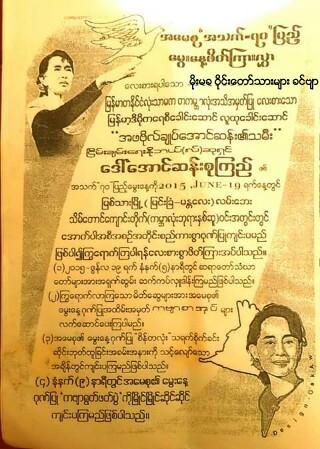 "အမေစု" အသက်-၇၀" ပြည့်
မွေးနေ့ဖိတ်ကြားလွှာ
လေးစားရပါသော မိုးမခ ဝိုင်းတော်သားများ ခင်ဗျာ
မြန်မာတနိုင်ငံလုံးသာမက တကမ္ဘာလုံးအသိအမှတ်ပြု လေးစားသော
မြန်မာ့ဒီမိုကရေစီခေါင်းဆောင် လူထုခေါင်းဆောင်
"အဖဗိုလ်ချုပ်အောင်ဆန်း၏သမီး"
ငြိမ်းချမ်းရေးနိုဘယ်(လ်)ဆုရှင်
ဒေါ်အောင်ဆန်းစုကြည် ၏
အသက်"၇၀"ပြည့်မွေးနေ့ကို 2015 ,JUNE-19 ရက်နေ့တွင်
မြစ်သားမြို့ ( မြင်းခြံ-မန္တလေး) လမ်းဘေး
သိမ်တောင်ကျောင်းတိုက်(ကမ္ဘာလုံးဘုရားနစ်ဆူ)ဝင်းအတွင်းတွင်
အောက်ပါအစီအစဉ်အတိုင်းစည်ကားစွာဂုဏ်ပြုကျင်းပမည်
ဖြစ်ပါ၍ကြွရောက်ကြပါရန်လေးစားစွာဖိတ်ကြားအပ်ပါသည်။
(၁)၂၀၁၅-ဇွန်လ ၁၉ ရက် နံနက်(၅)နာရီတွင် ဆရာတော်သံဃာ
တော်များအားအရုဏ်ဆွမ်း ဆက်ကပ်လှူဒါန်းကြမည်ဖြစ်ပါသည်။
(၂)ကြွရောက်လာကြသောမိတ်ဆွေများအားအမေစု၏
မွေးနေ့ဂုဏ်ပြုအထိမ်းအမှတ် များ
လက်ဆောင်ပေးကြပါမည်။
(၃)အမေစု၏ မွေးနေ့ ဂုဏ်ပြု "စိန်တလုံး" သရက်စိုက်ခင်း
ဆိုင်းဘုတ်ထူခြင်းအခမ်းအနားကို သင့်လျော်သော
အချိန်တွင်ကျင်းပကြမည်ဖြစ်ပါသည်။
(၄) နံနက် (၉) နာရီတွင်အမေစု၏ မွေးနေ့
ဂုဏ်ပြု "ကဗျာရွတ်ဖတ်ပွဲ"ကိုမြိုင်မြိုင်ဆိုင်ဆိုင်
ကျင်းပကြမည်ဖြစ်ပါသည်။